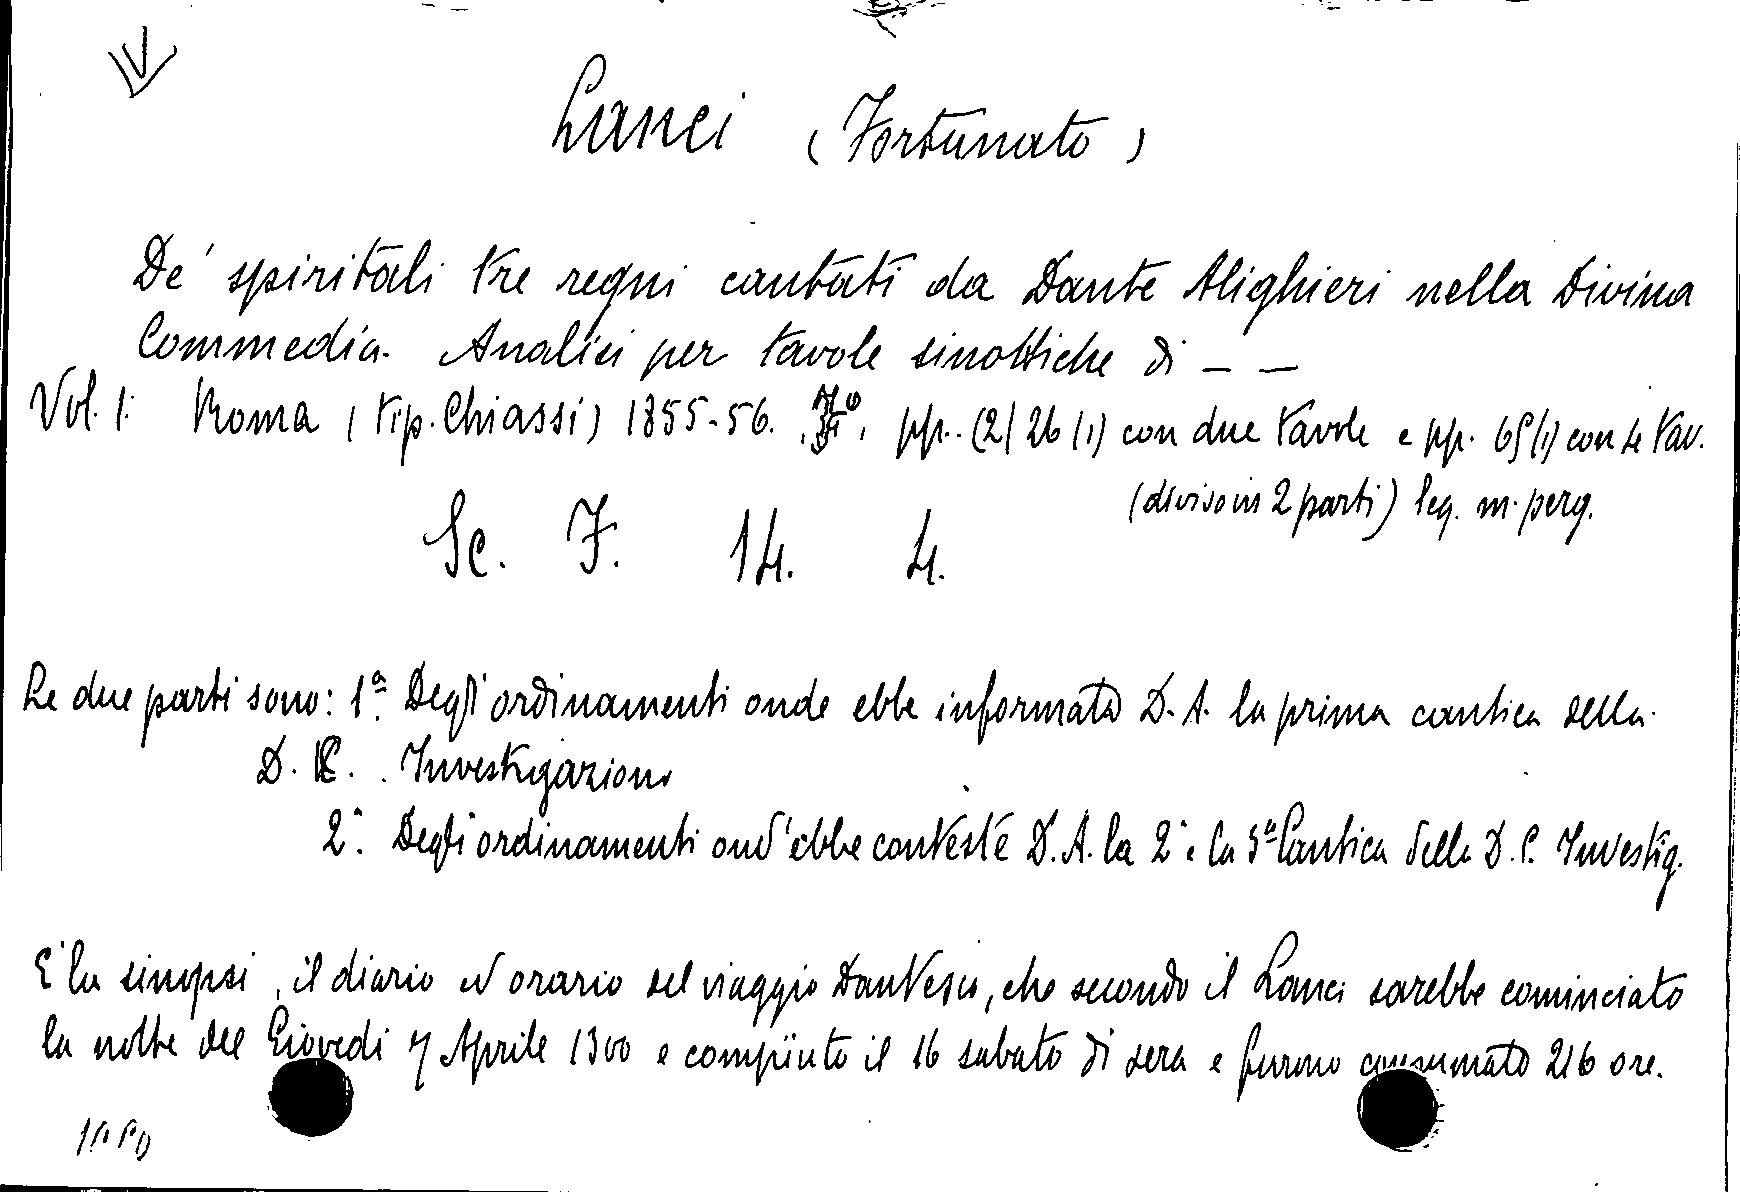 Lanci (Fortunato)
De' spiritali tre regni cantati da Dante Alighieri nella Divina
Commedia. Analisi per tavole sinottiche di _ _
Vol. 1: Roma (tip. Chiassi) 1855-56. pp. (2) 26 (1) con due tavole e pp. 65 (1) con 4 tav.
(diviso in 2 parti) leg. m. perg.
Sc. F. 14. 4.
Le due parti sono: 1ª Degli ordinamenti onde ebbe informata D. A. la prima cantica della
D. C. Investigazione
2ª. Degli ordinamenti ond'ebbe conteste D. A. la 2ª e la 3ª Cantica della D. C. Investig.
E' la sinopsi, il diario ed orario del viaggio Dantesco, che secondo il Lanci sarebbe cominciato
la notte del Giovedi 7 Aprile 1300 e compiuto il 16 sabato di sera e furono consumato 216 ore.